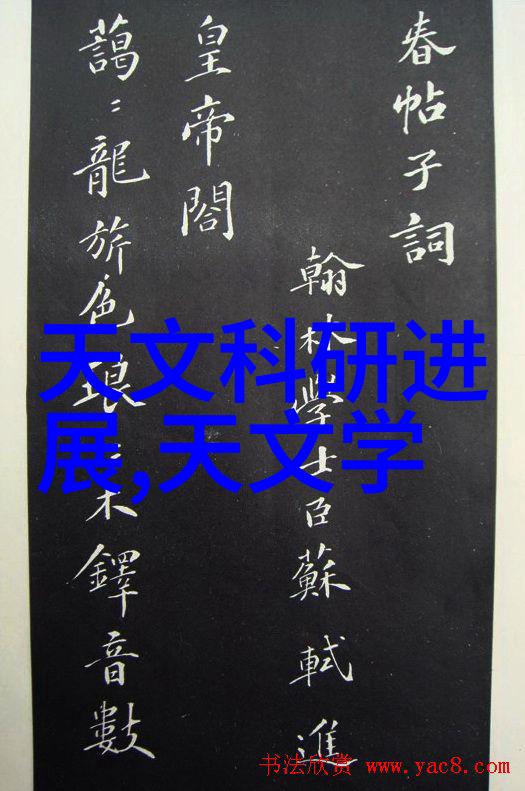 春帖子詞
翰林學士臣蘇軾進
皇帝閤
藹〻龍旂色琅〻木鐸音數
天文科研进
展,天文学
书法欣赏 www.yac8.com